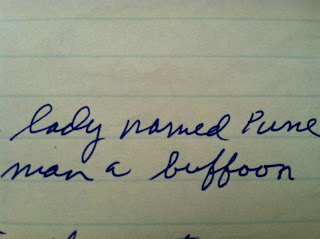 lady named Pune
man a buffoon